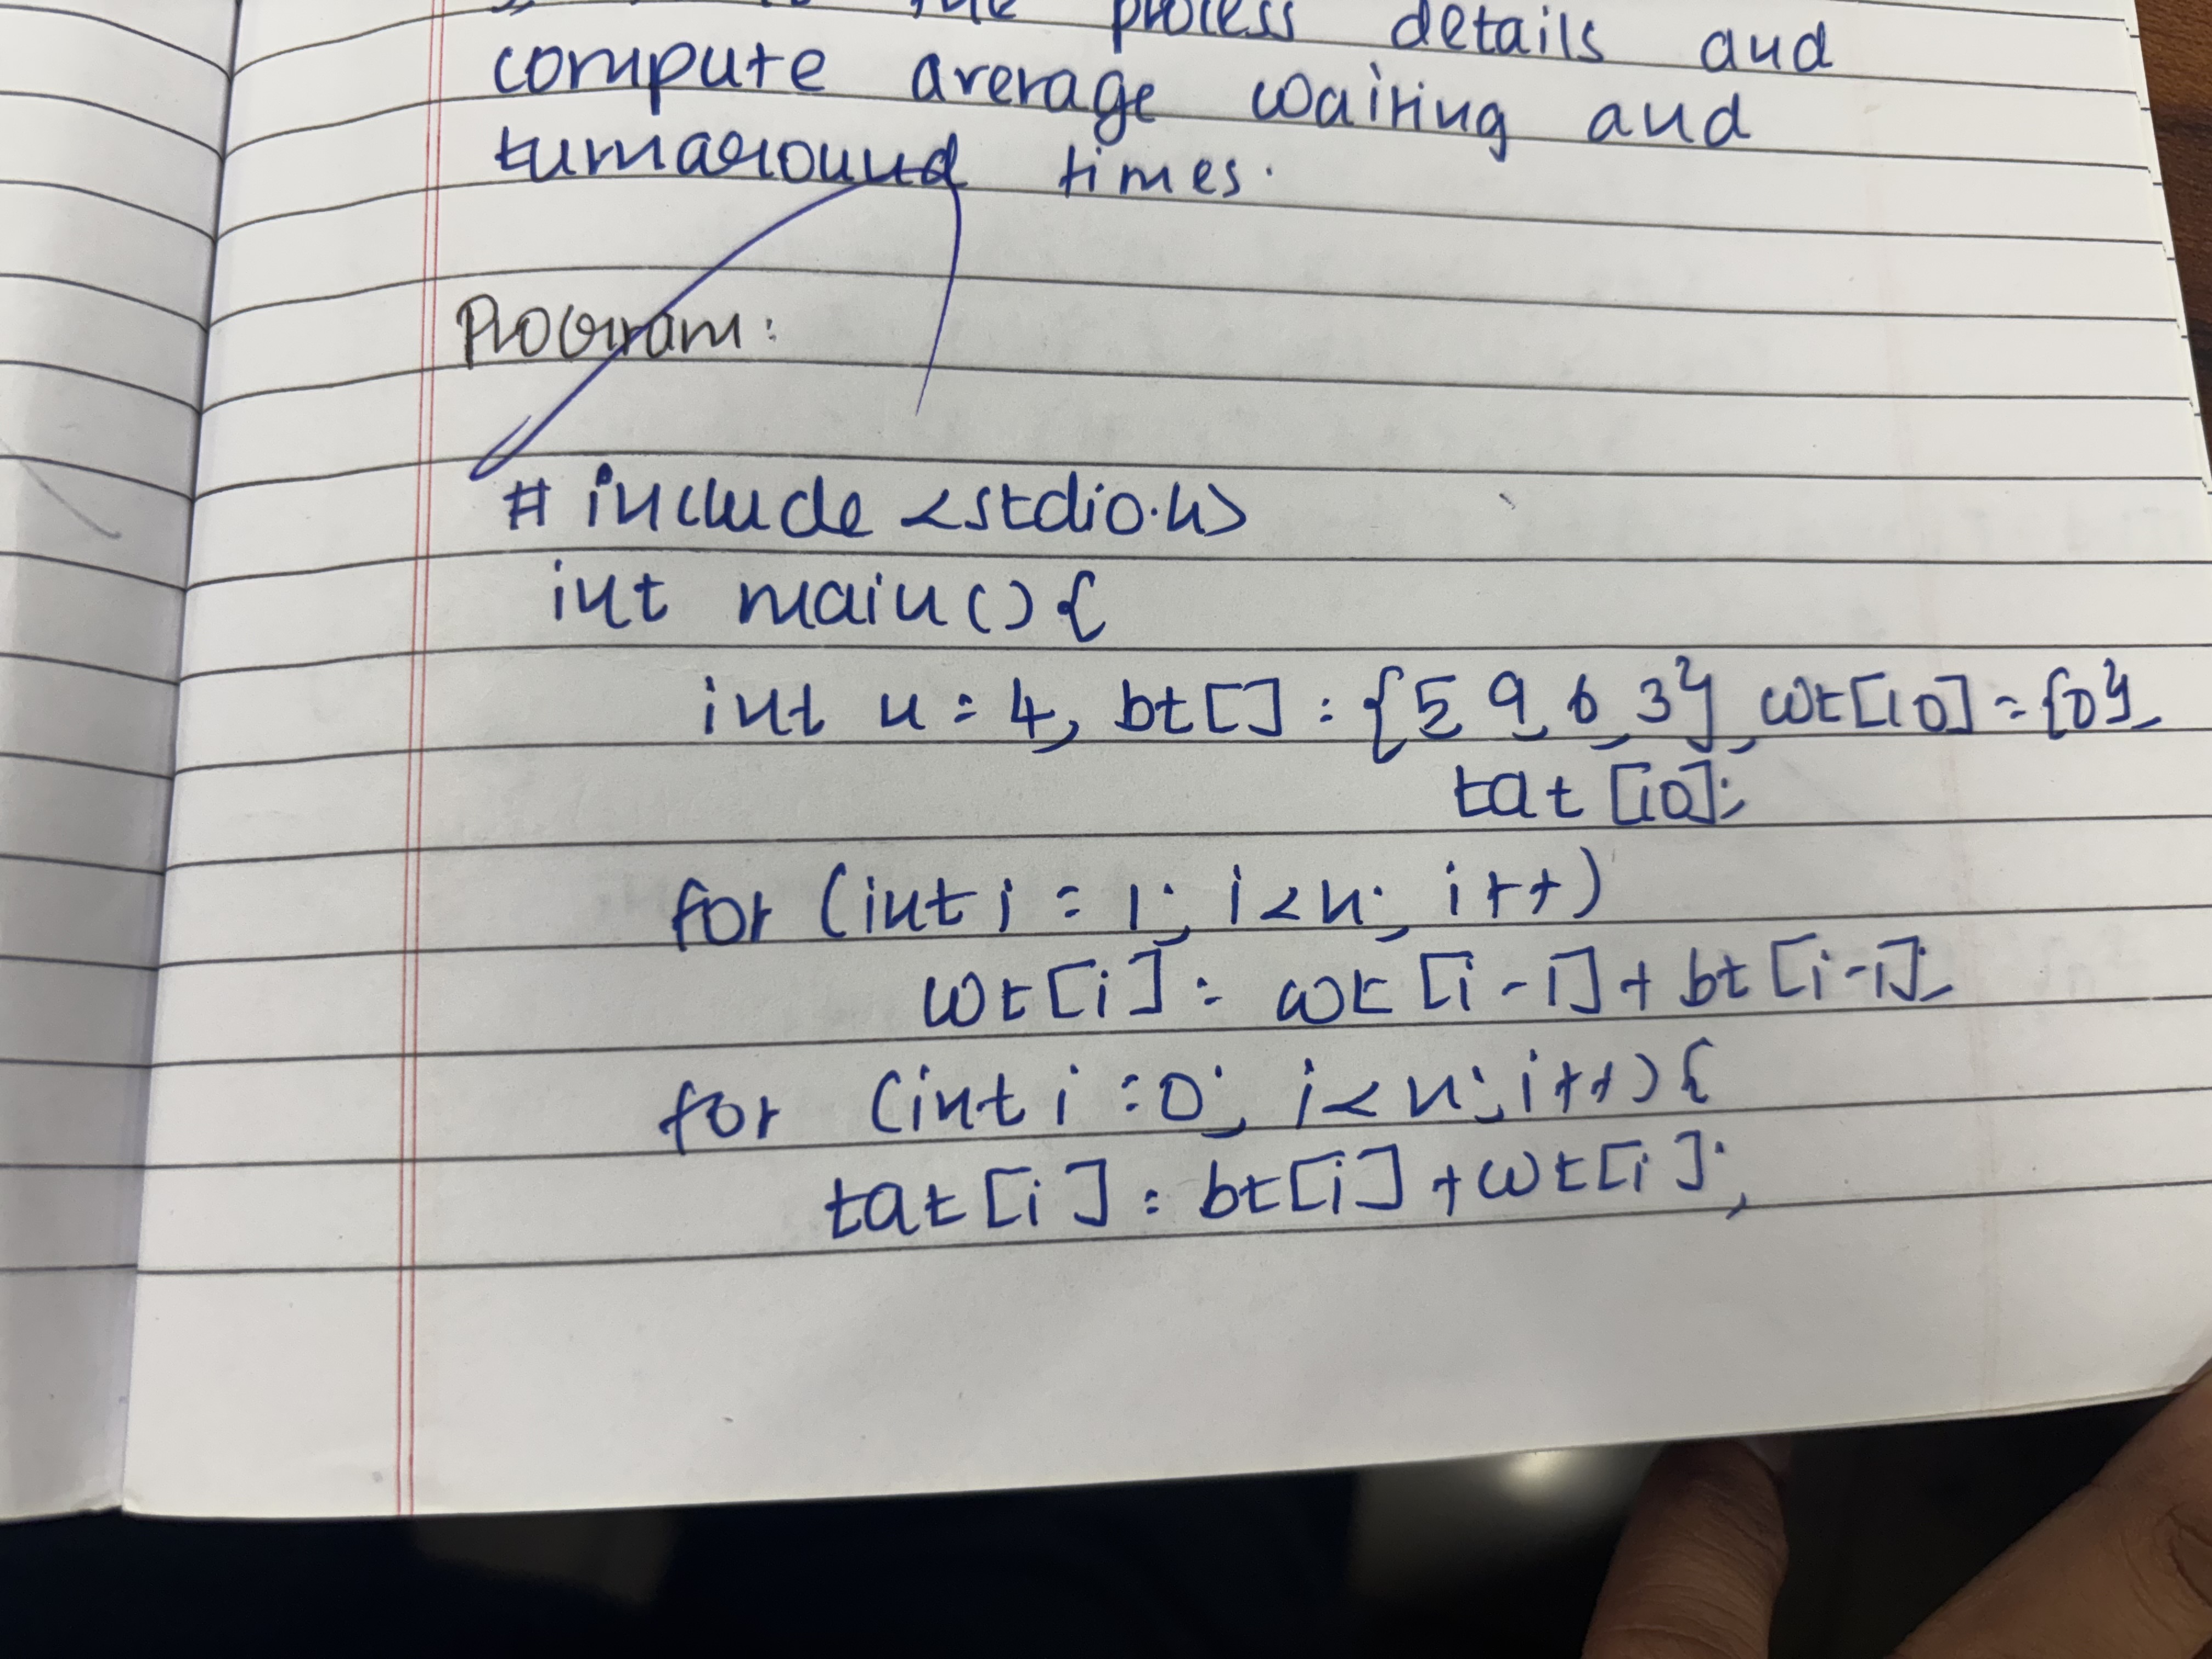 the process details and
compute average waiting and
turnaround times.
Program:
# include <stdio.h>
int main() {
int n = 4, bt[] = {5 9, 6, 3}, wt[10] = {0},
tat [10];
for (int i = 1; i<n; i++)
wt[i] = wt[i-1] + bt[i-1];
for (int i = 0; i<n; i++) {
tat[i] = bt[i] + wt[i];